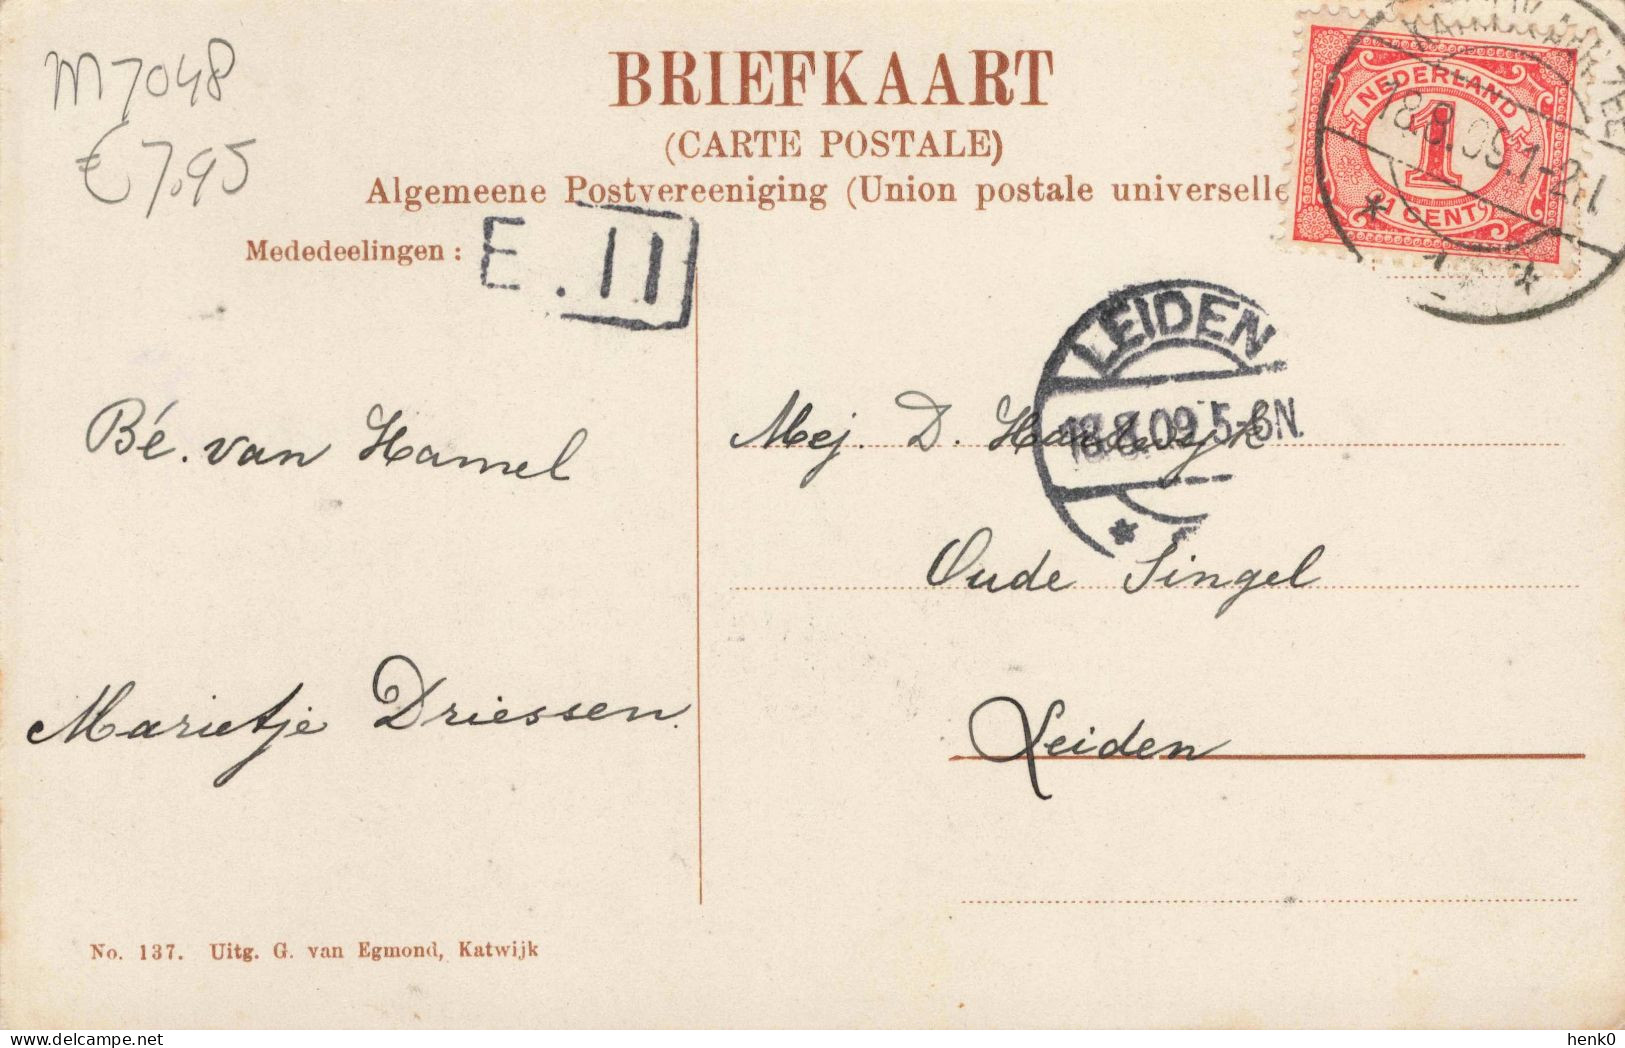 M7048
€7.95
BRIEFKAART
(CARTE POSTALE)
Algemeene Postvereeniging (Union postale universelle
Mededeelingen:
E. 11
NEDERLAND
1
1 CENT
18.8.09.1-2
LEIDEN
18.8.09 5-6N.
Bé. van Hamel
Marietje Driessen.
Mej. D.
Oude Singel
Leiden
No. 137. Uitg. G. van Egmond, Katwijk
henk0